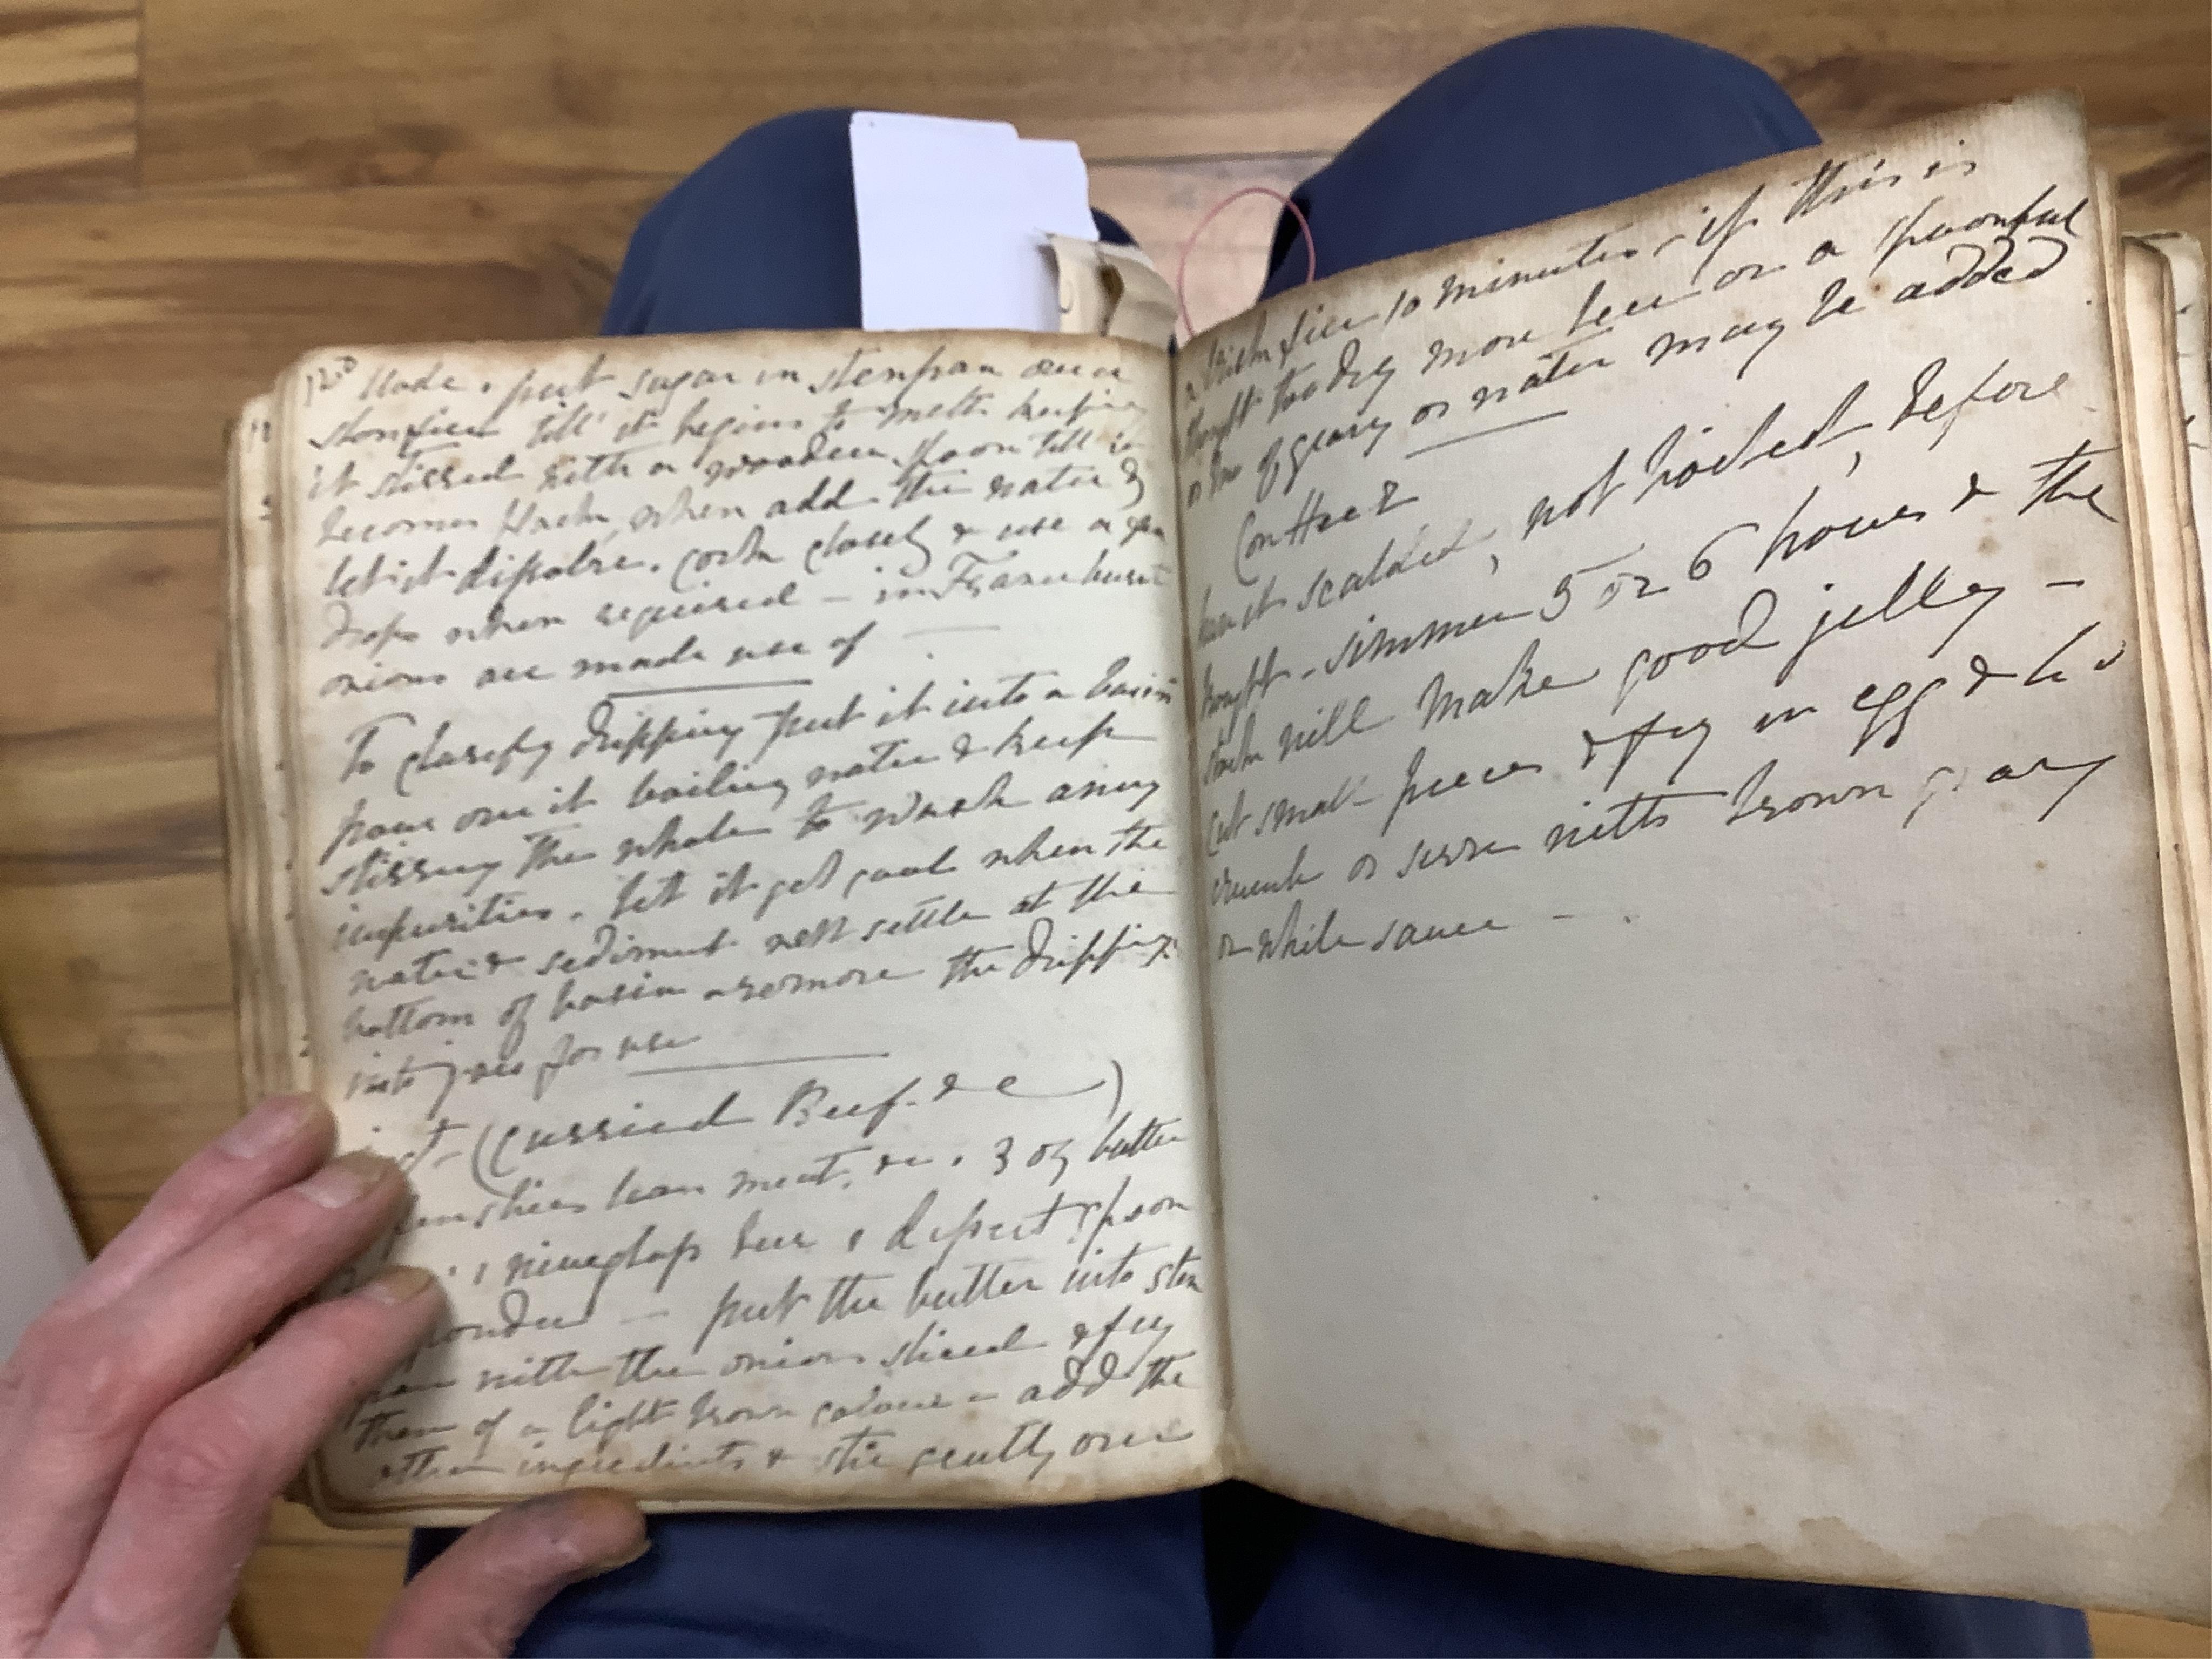 Mode. put sugar in stewpan over a
slow fire till it begins to melt keeping
it stirred with a wooden spoon till it
becomes black, when add the water &
let it dissolve. cork closely & use a few
drops when required — in
onions are made use of —
To clarify dripping put it into a basin
pour over it boiling water & keep
stirring the whole to wash away
impurities. let it get cool when the
water & sediment will settle at the
bottom of basin remove the dripping
into jars for use
(Curried Beef &c)
slices lean meat, &c. 3 oz butter
1 wineglass beer 1 dessert spoon
powder — put the butter into stew
pan with the onions sliced & fry
them of a light brown colour — add the
other ingredients & stir gently over
a brisk fire 10 minutes — if this is
thought too dry more beer or a spoonful
or two of gravy or water may be added
Cow Heel
have it scalded, not boiled, before
bought — simmer 5 or 6 hours & the
stock will make good jelly —
Cut small pieces & fry in egg &
crumb or serve with brown gravy
or white sauce — .